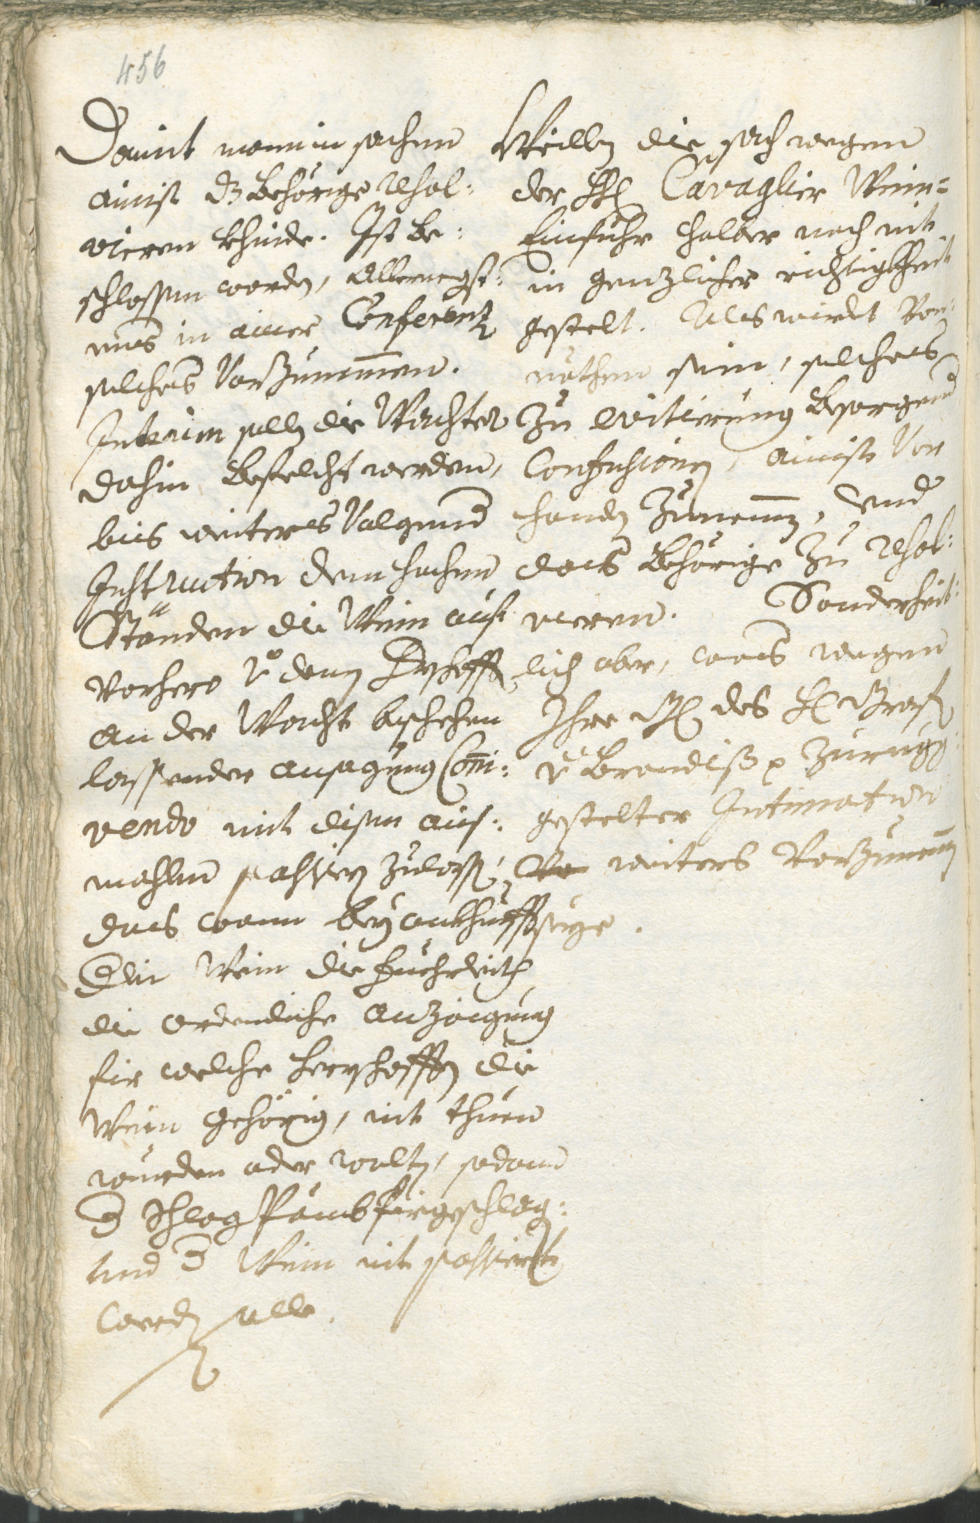 456
Damit man in sachen
ainist dz Behörige resol:
vieren khinde. Ist Be:
schlossen worden, Allernegst:
ens in ainer Conferentz
solches Vorzunemmen.
Interim solle die Wachter
dahin Befelcht werden,
bis weiteres Volgend
Instruction denen hochen
Ständen die Wein auf
vorhero v: denen
an der Wacht beschehen
lassender ansagung Coni:
vendo mit disem aus:
mahlen passiern zulass,
das wann bey ankhunfft
Der Wein die Fuehrleith
die ordenliche anzaigung
für welche Herrschafften die
Wein gehörig, nit thuen
wurden oder wolten, sodann
d Schlag Pamb firgeschlag:
und d Wein nit passiert
werden solle.
Weillen die sach wegen
der HH Cavaglier Wein=
Einfuhr halber noch nit
in genzlicher richtigkheit
gestelt. Als wirdt Von:
nöthen sein, solches
Zu evitierung Besorgend
Confusionen, ainist Vor
handen Zunemmen, und
das Behörige Zu resol:
vieren. Sonderheit:
lich aber, was wegen
Ihro des H Graf
v Brandiß p Zurugg
gestelter Intimation
weiters Vorzunemmen
seye.